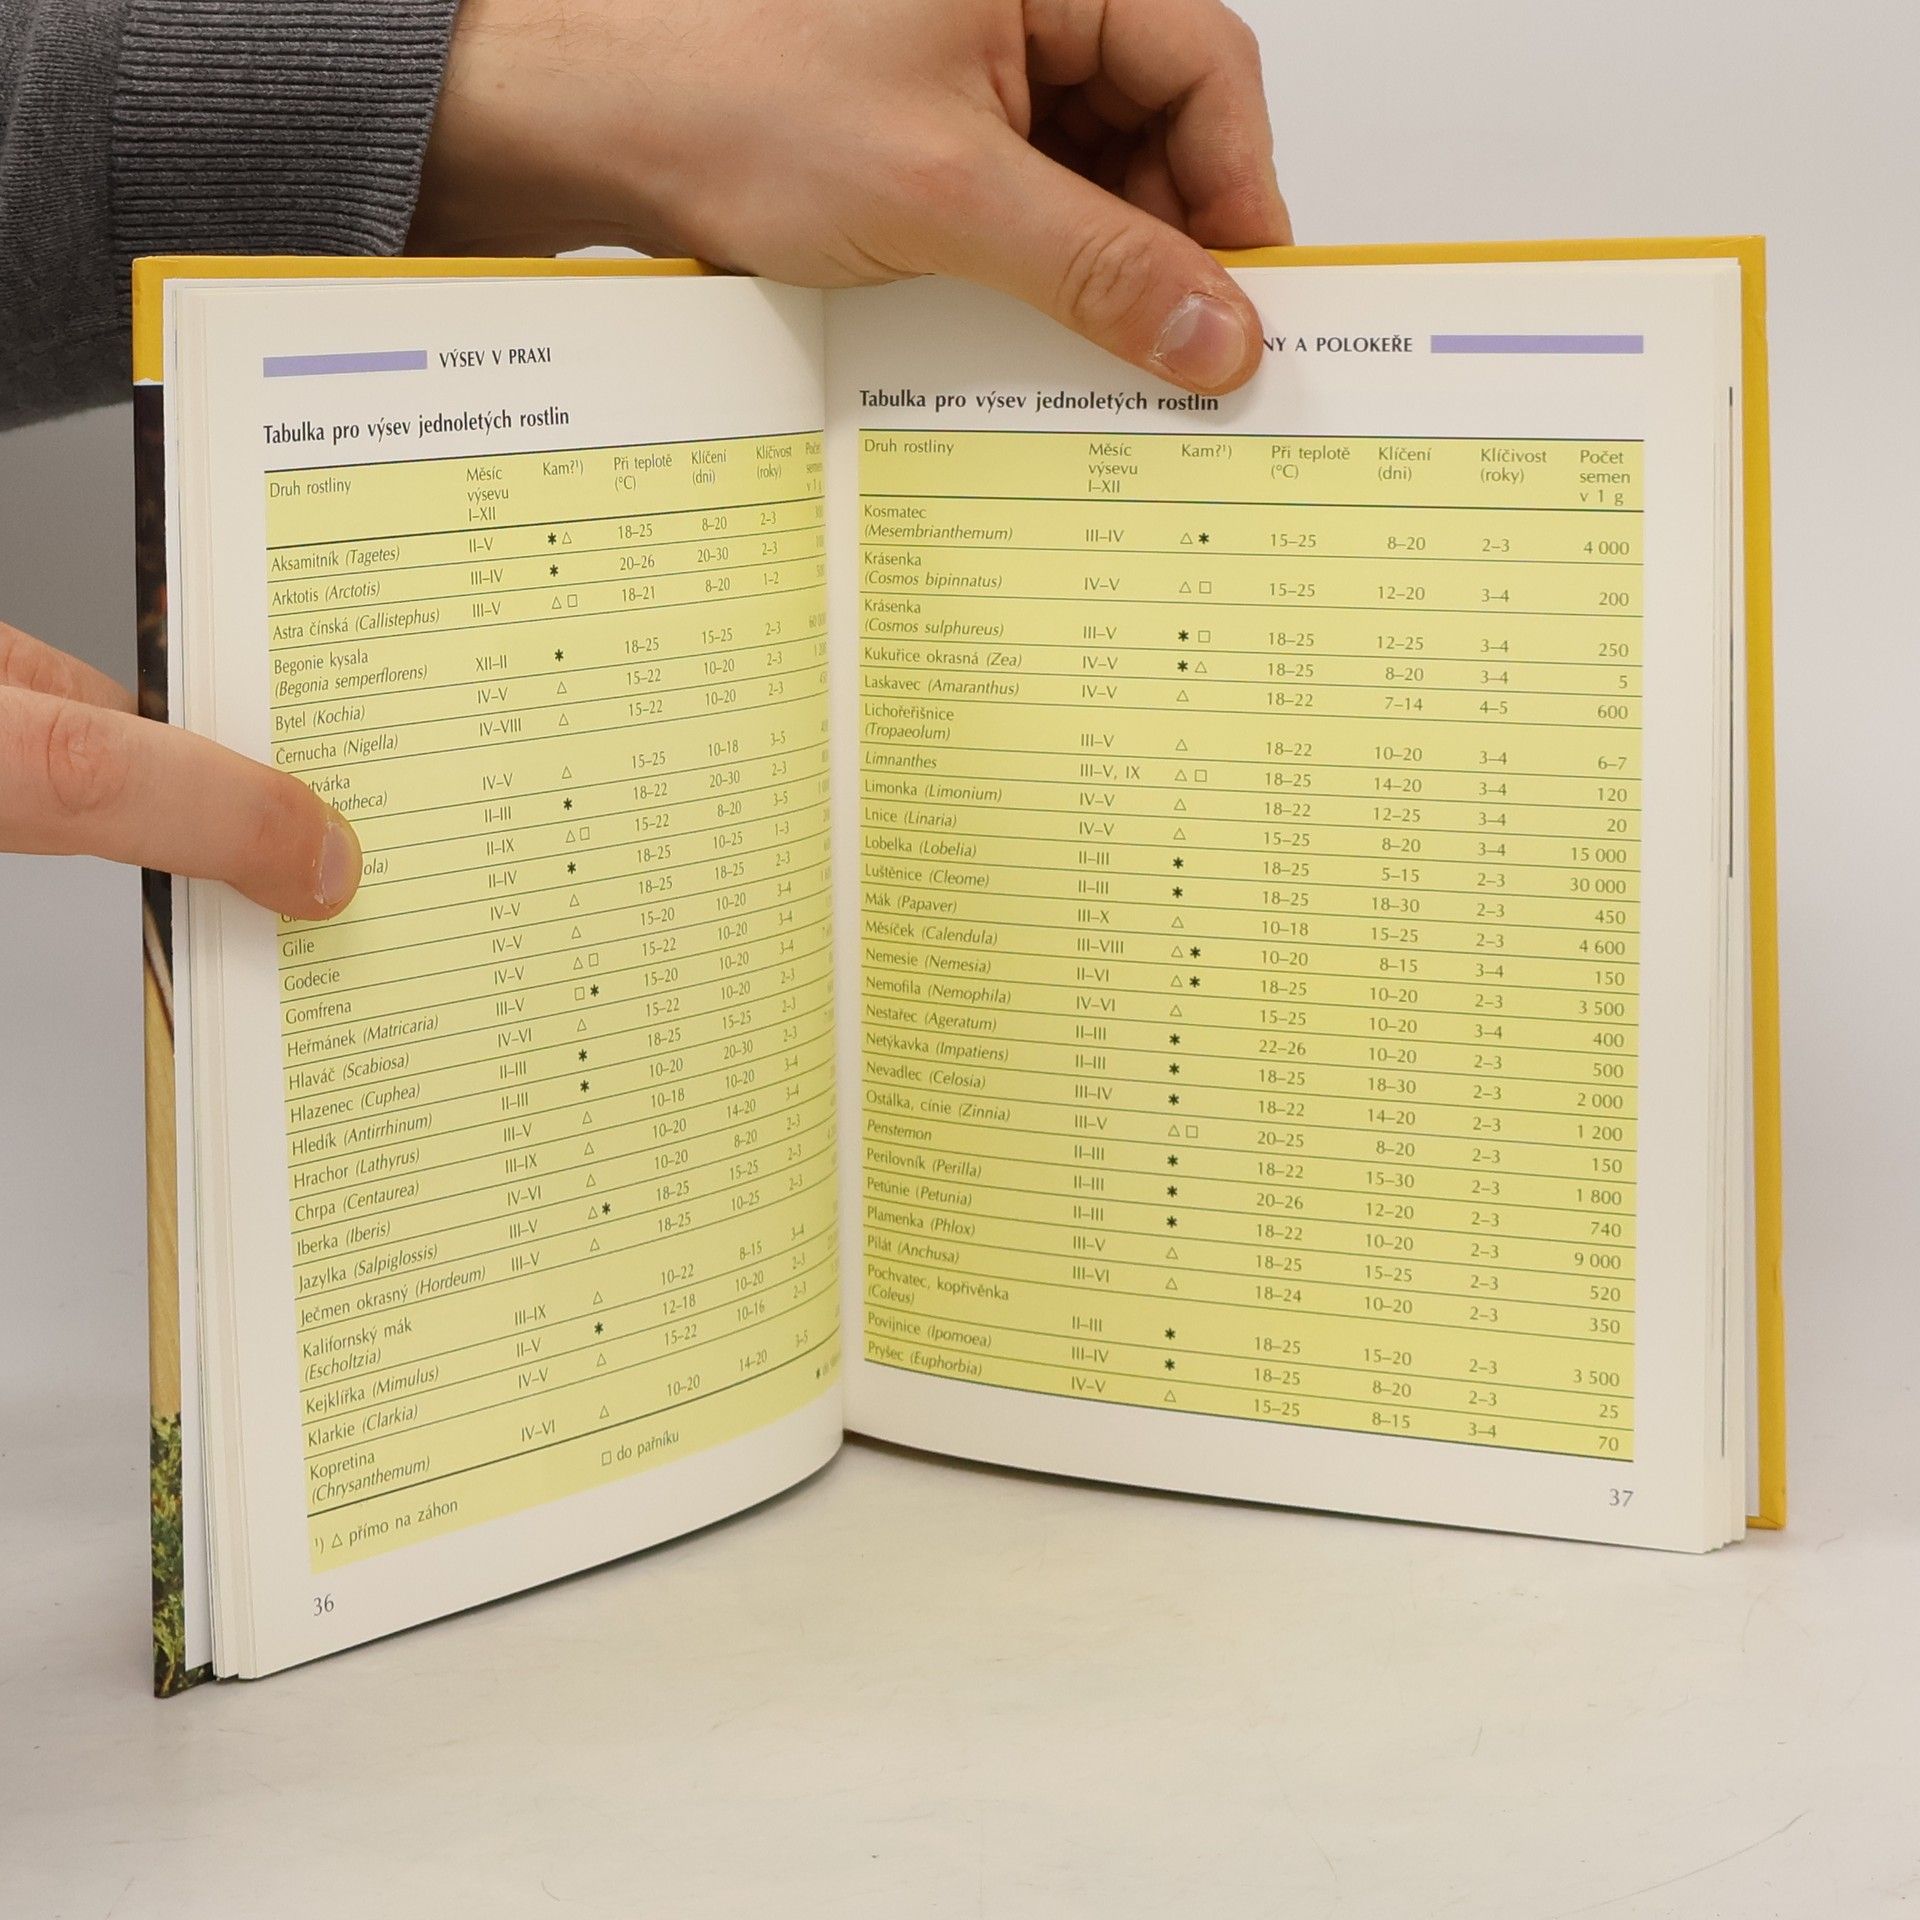 VÝSEV V PRAXI
Tabulka pro výsev jednoletých rostlin
Druh rostliny Měsíc výsevu I–XII Kam?¹) Při teplotě (°C) Klíčení (dni) Klíčivost (roky) Počet semen v 1 g
Aksamitník (Tagetes) II–V ✱ △ 18–25 8–20 2–3
Arktotis (Arctotis) III–IV ✱ 20–26 20–30 2–3
Astra čínská (Callistephus) III–V △ □ 18–21 8–20 1–2
Begonie kysala
(Begonia semperflorens) XII–II ✱ 18–25 15–25 2–3
Bytel (Kochia) IV–V △ 15–22 10–20 2–3
Černucha (Nigella) IV–VIII △ 15–22 10–20 2–3
IV–V △ 15–25 10–18 3–5
II–III ✱ 18–22 20–30 2–3
II–IX △ □ 15–22 8–20 3–5
II–IV ✱ 18–25 10–25 1–3
Gilie IV–V △ 18–25 18–25 2–3
Godecie IV–V △ 15–20 10–20 3–4
Gomfrena IV–V △ □ 15–22 10–20 3–4
Heřmánek (Matricaria) III–V □ ✱ 15–20 10–20 3–4
Hlaváč (Scabiosa) IV–VI △ 15–22 10–20 2–3
Hlazenec (Cuphea) II–III ✱ 18–25 15–25 2–3
Hledík (Antirrhinum) II–III ✱ 10–20 20–30 2–3
Hrachor (Lathyrus) III–V △ 10–18 10–20 3–4
Chrpa (Centaurea) III–IX △ 10–20 14–20 3–4
Iberka (Iberis) IV–VI △ 10–20 8–20 2–3
Jazylka (Salpiglossis) III–V △ ✱ 18–25 15–25 2–3
Ječmen okrasný (Hordeum) III–V △ 18–25 10–25 2–3
Kalifornský mák
(Escholtzia) III–IX △ 10–22 8–15 3–4
Kejklířka (Mimulus) II–V ✱ 12–18 10–20 2–3
Klarkie (Clarkia) IV–V △ 15–22 10–16 2–3
Kopretina
(Chrysanthemum) IV–VI △ 10–20 14–20 3–5
¹) △ přímo na záhon □ do pařníku ✱
36
NY A POLOKEŘE
Tabulka pro výsev jednoletých rostlin
Druh rostliny Měsíc výsevu I–XII Kam?¹) Při teplotě (°C) Klíčení (dni) Klíčivost (roky) Počet semen v 1 g
Kosmatec
(Mesembrianthemum) III–IV △ ✱ 15–25 8–20 2–3 4 000
Krásenka
(Cosmos bipinnatus) IV–V △ □ 15–25 12–20 3–4 200
Krásenka
(Cosmos sulphureus) III–V ✱ □ 18–25 12–25 3–4 250
Kukuřice okrasná (Zea) IV–V ✱ △ 18–25 8–20 3–4 5
Laskavec (Amaranthus) IV–V △ 18–22 7–14 4–5 600
Lichořeřišnice
(Tropaeolum) III–V △ 18–22 10–20 3–4 6–7
Limnanthes III–V, IX △ □ 18–25 14–20 3–4 120
Limonka (Limonium) IV–V △ 18–22 12–25 3–4 20
Lnice (Linaria) IV–V △ 15–25 8–20 3–4 15 000
Lobelka (Lobelia) II–III ✱ 18–25 5–15 2–3 30 000
Luštěnice (Cleome) II–III ✱ 18–25 18–30 2–3 450
Mák (Papaver) III–X △ 10–18 15–25 2–3 4 600
Měsíček (Calendula) III–VIII △ ✱ 10–20 8–15 3–4 150
Nemesie (Nemesia) II–VI △ ✱ 18–25 10–20 2–3 3 500
Nemofila (Nemophila) IV–VI △ 15–25 10–20 3–4 400
Nestařec (Ageratum) II–III ✱ 22–26 10–20 2–3 500
Netýkavka (Impatiens) II–III ✱ 18–25 18–30 2–3 2 000
Nevadlec (Celosia) III–IV ✱ 18–22 14–20 2–3 1 200
Ostálka, cínie (Zinnia) III–V △ □ 20–25 8–20 2–3 150
Penstemon II–III ✱ 18–22 15–30 2–3 1 800
Perilovník (Perilla) II–III ✱ 20–26 12–20 2–3 740
Petúnie (Petunia) II–III ✱ 18–22 10–20 2–3 9 000
Plamenka (Phlox) III–V △ 18–25 15–25 2–3 520
Pilát (Anchusa) III–VI △ 18–24 10–20 2–3 350
Pochvatec, kopřivěnka
(Coleus) II–III ✱ 18–25 15–20 2–3 3 500
Povijnice (Ipomoea) III–IV ✱ 18–25 8–20 2–3 25
Pryšec (Euphorbia) IV–V △ 15–25 8–15 3–4 70
37